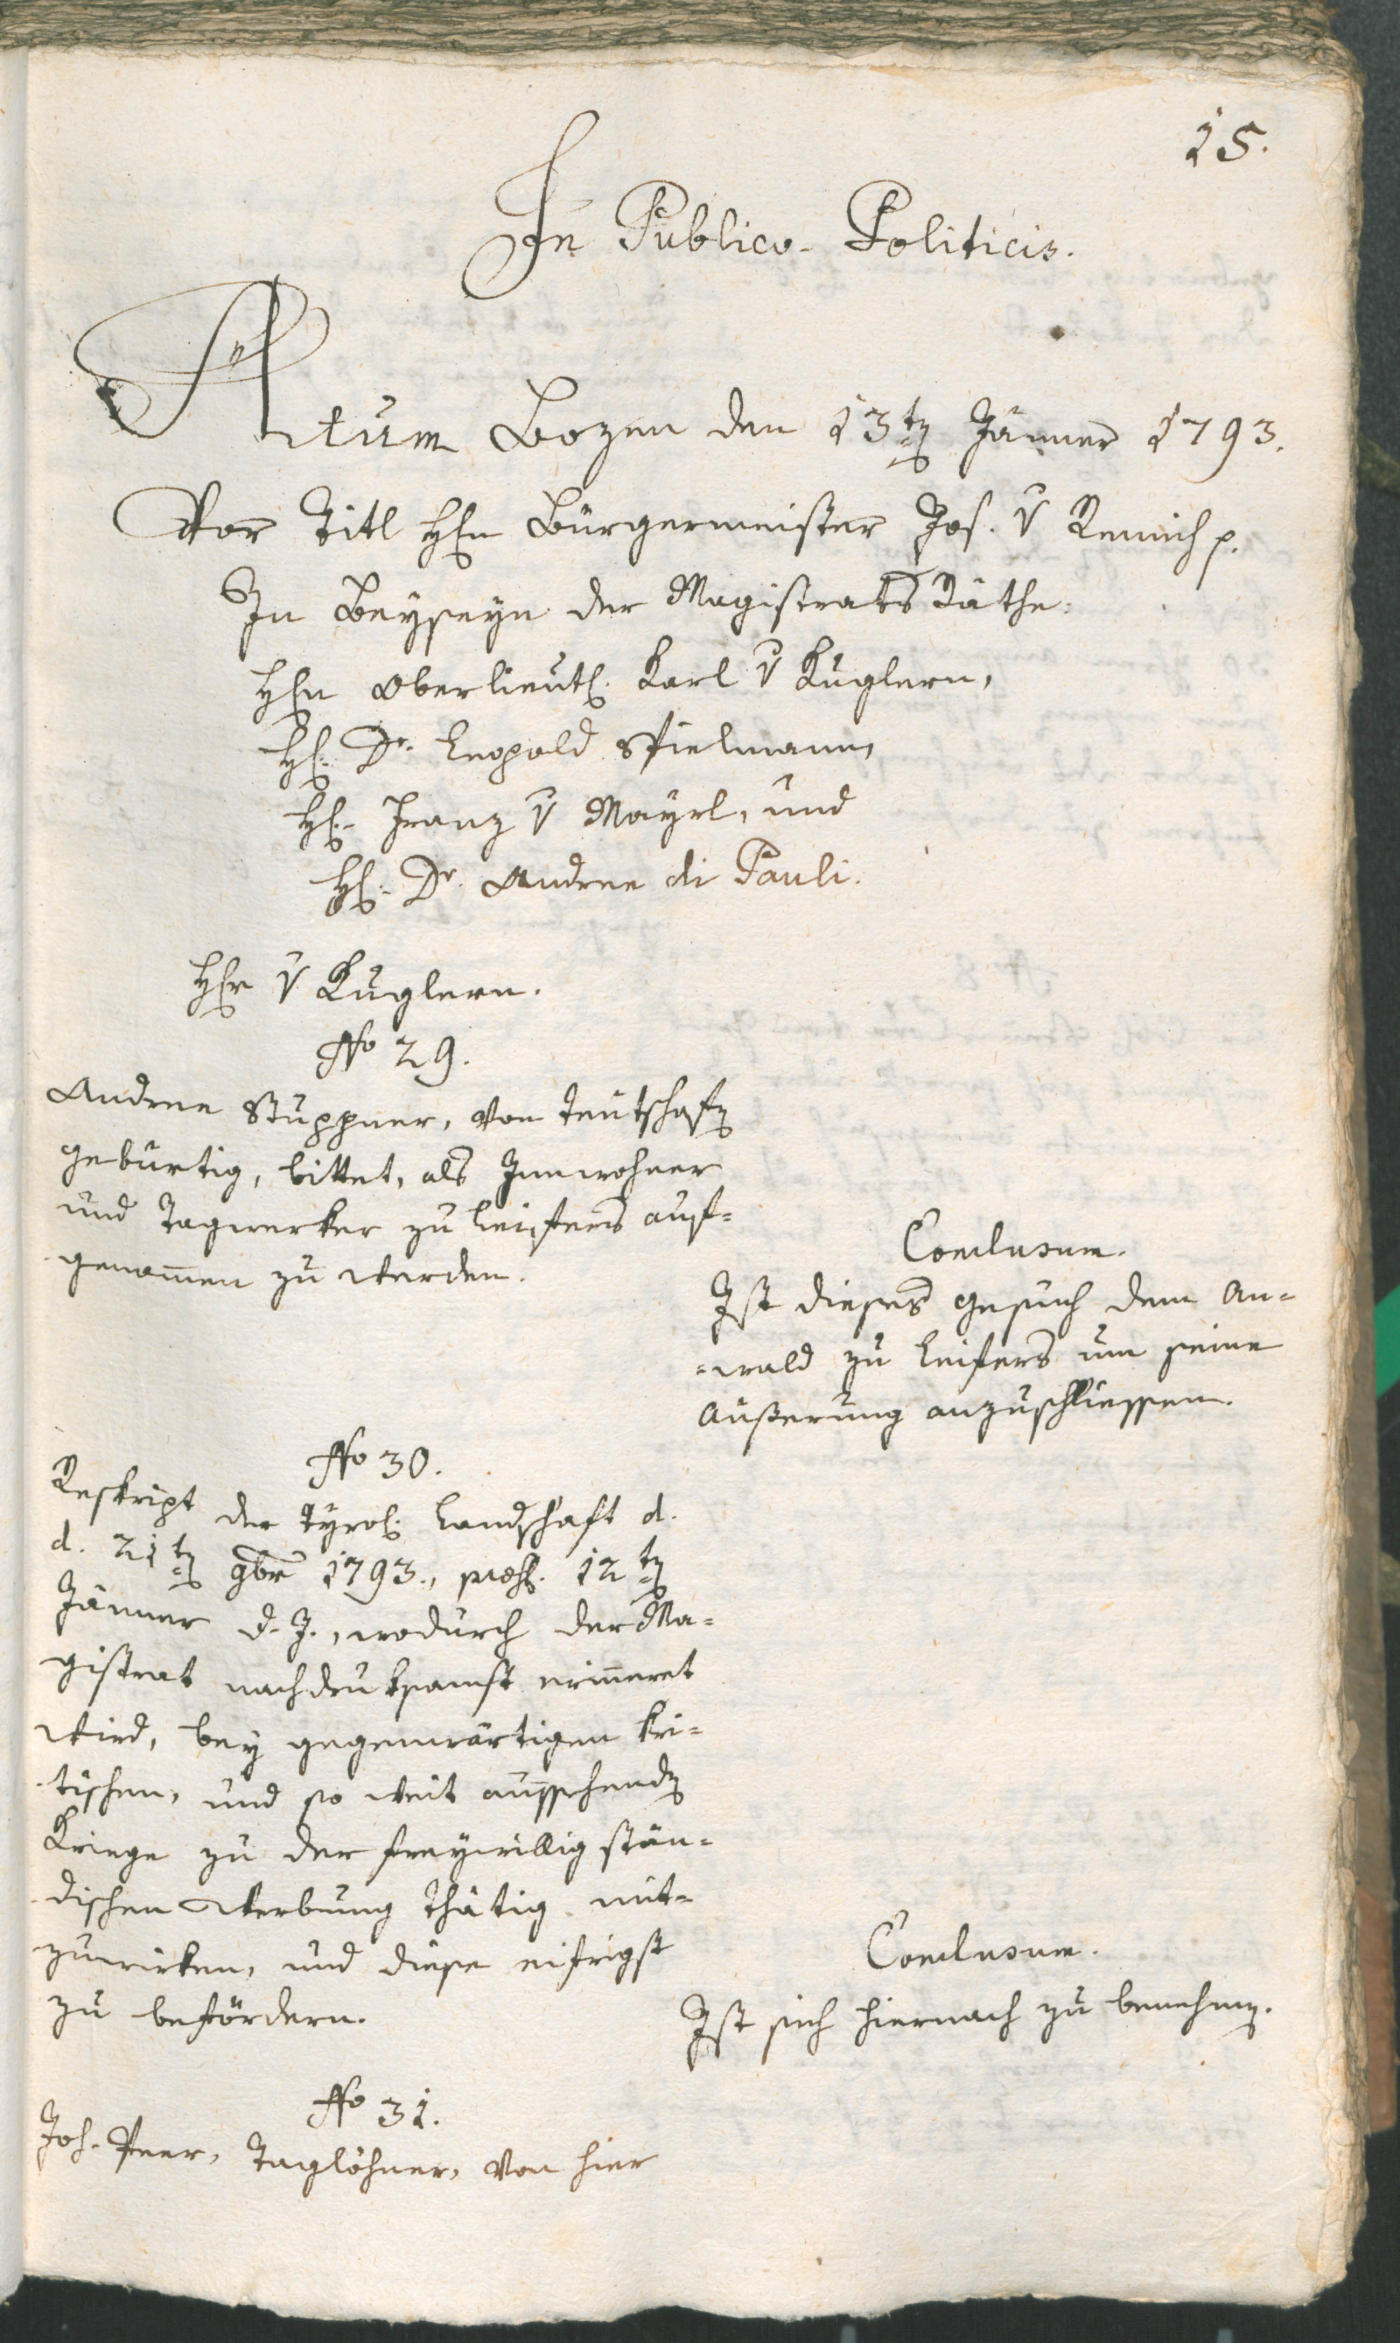 15.
In Publico-Politicis.
Actum Bozen den 13t Jänner 1793.
Vor Titl Hrn Bürgermeister Jos. v Remich p.
In Beyseyn der Magistrats Räthe:
Hrn Oberlieut. Karl v Kuglern,
H. Dr. Leopold Spielmann,
H. Franz v Mayrl, und
H. Dr. Andree di Pauli.
Hr v Kuglern.
No 29.
Andree Stuppner, von
gebürtig, bittet, als Innwohner
und Tagwerker zu Leifers auf-
genommen zu werden.
Conclusum.
Ist dieses Gesuch dem An-
-wald zu Leifers um seine
Äußerung anzuschliessen.
No 30.
Reskript der Tyrol. Landschaft d.
d. 21t 9br 1793., praes. 12t
Jänner d. J., wodurch der Ma-
gistrat nachdruksamst erinneret
wird, bey gegenwärtigen kri-
tischen, und so weit aussehenden
Kriege zu der freywillig stän-
dischen Werbung thätig mit-
zuwirken, und diese eifrigst
zu befördern.
Conclusum.
Ist sich hiernach zu benehmen.
No 31.
Joh. Peer, Taglöhner, von hier